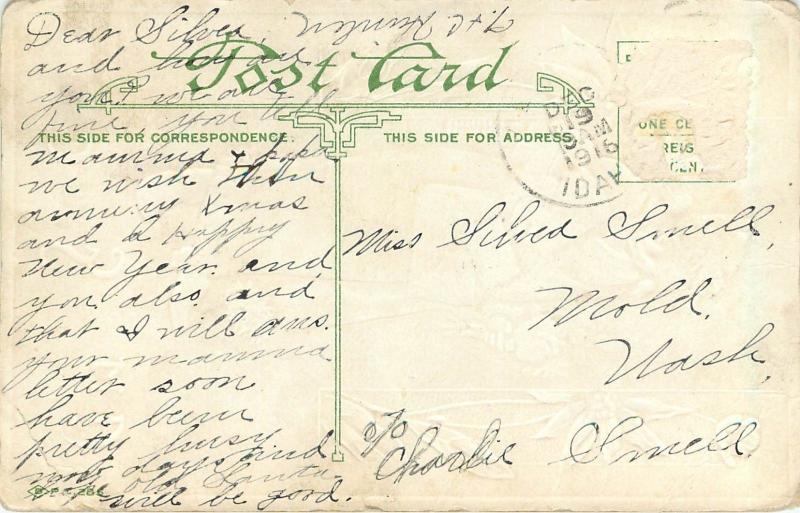 Dear Silved,
and how are
you? we are
fine you tell
mamma & papa
we wish them
a merry Xmas
and a Happy
New Year. and
you also. and
that I will ans.
your mamma
letter soon
have been
pretty busy
days and
Old Santa
will be good.
Post Card
THIS SIDE FOR CORRESPONDENCE.
THIS SIDE FOR ADDRESS
ONE CE
REIG
CENT
DEC
9 AM
1915
IDAH
Miss Silved Smell,
Mold.
Wash,
c/o
Charlie Smell.